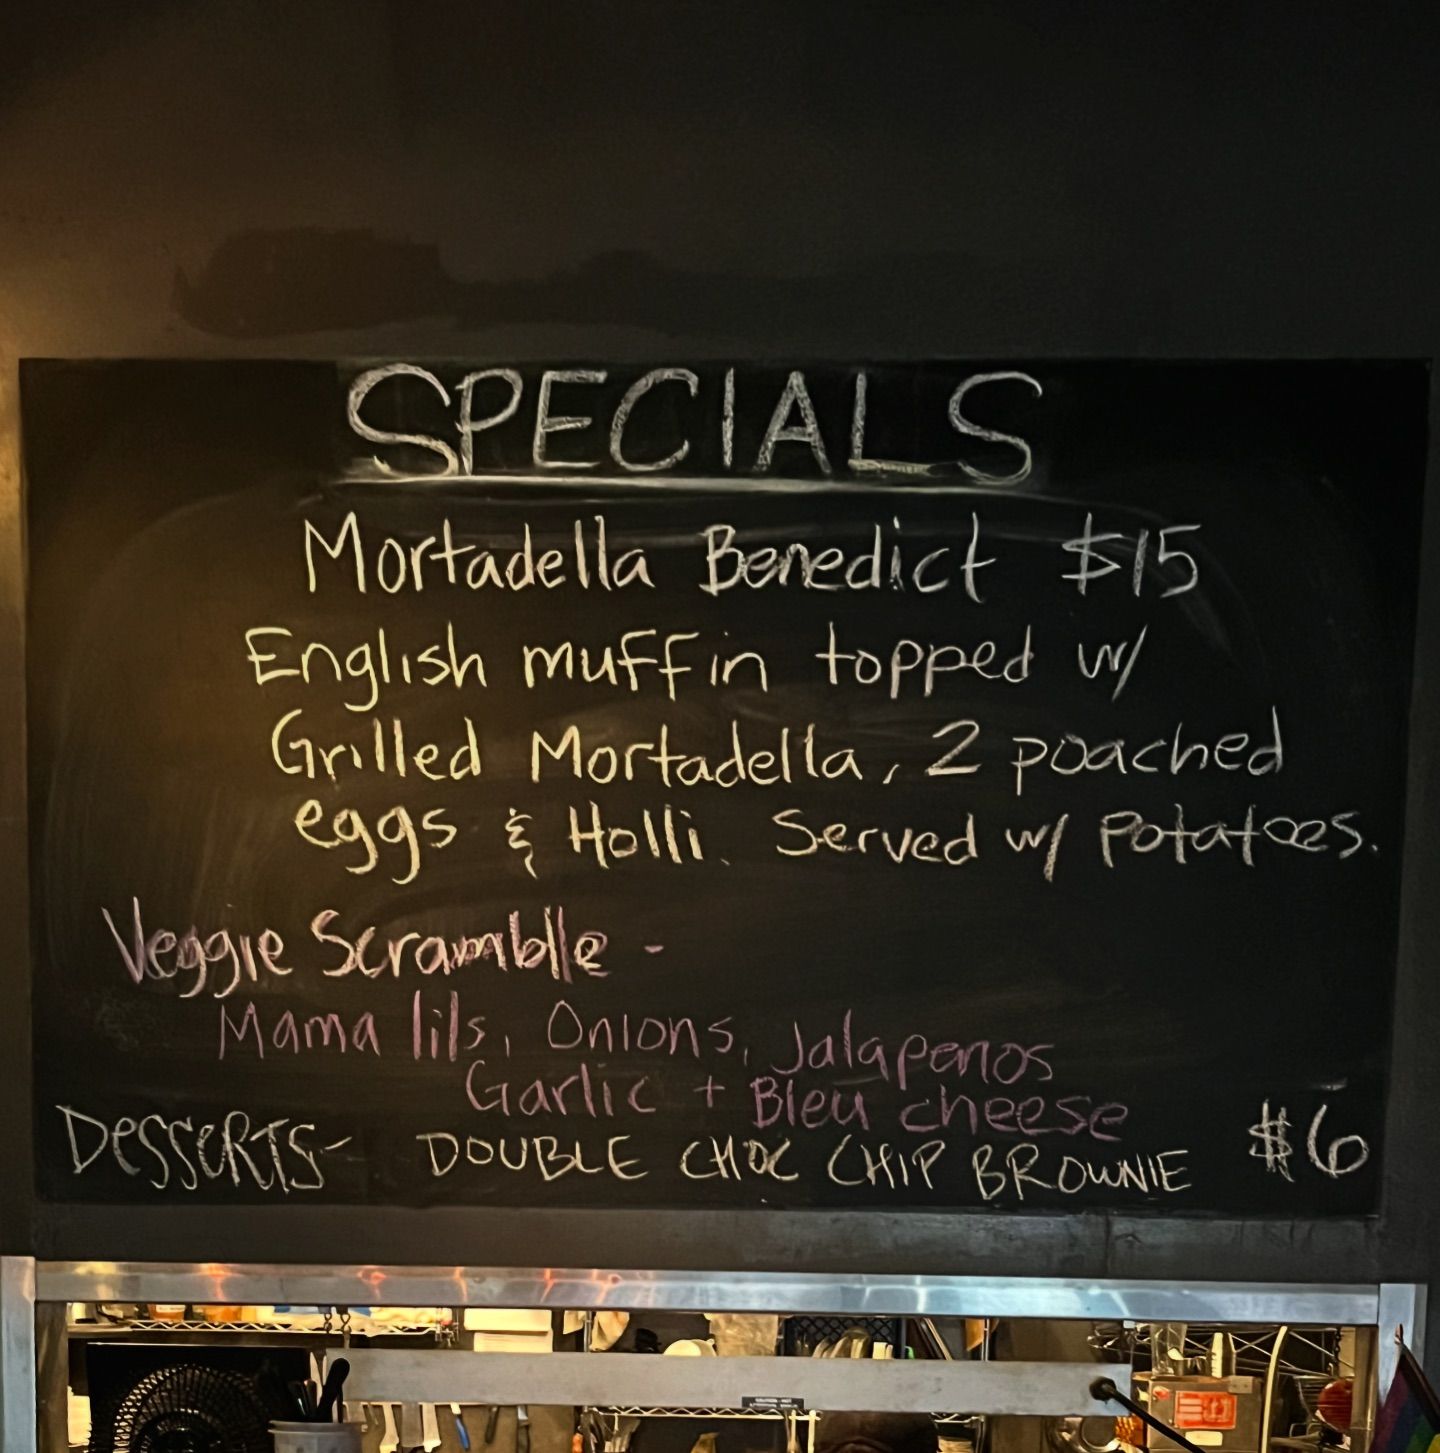 SPECIALS
Mortadella Benedict $15
English muffin topped w/
Grilled Mortadella, 2 poached
eggs & Holli. Served w/ Potatoes.
Veggie Scramblle -
Mama lils, Onions, Jalapenos
Garlic + Bleu cheese
DESSERTS- DOUBLE CHOC CHIP BROWNIE $6